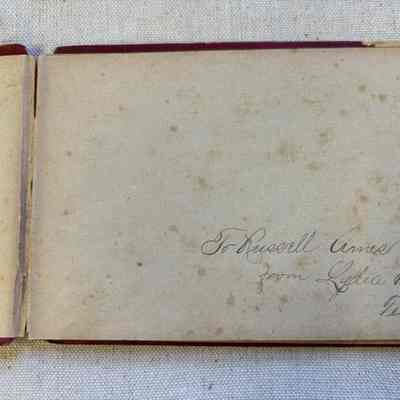 To Russell Ames
from Lydia